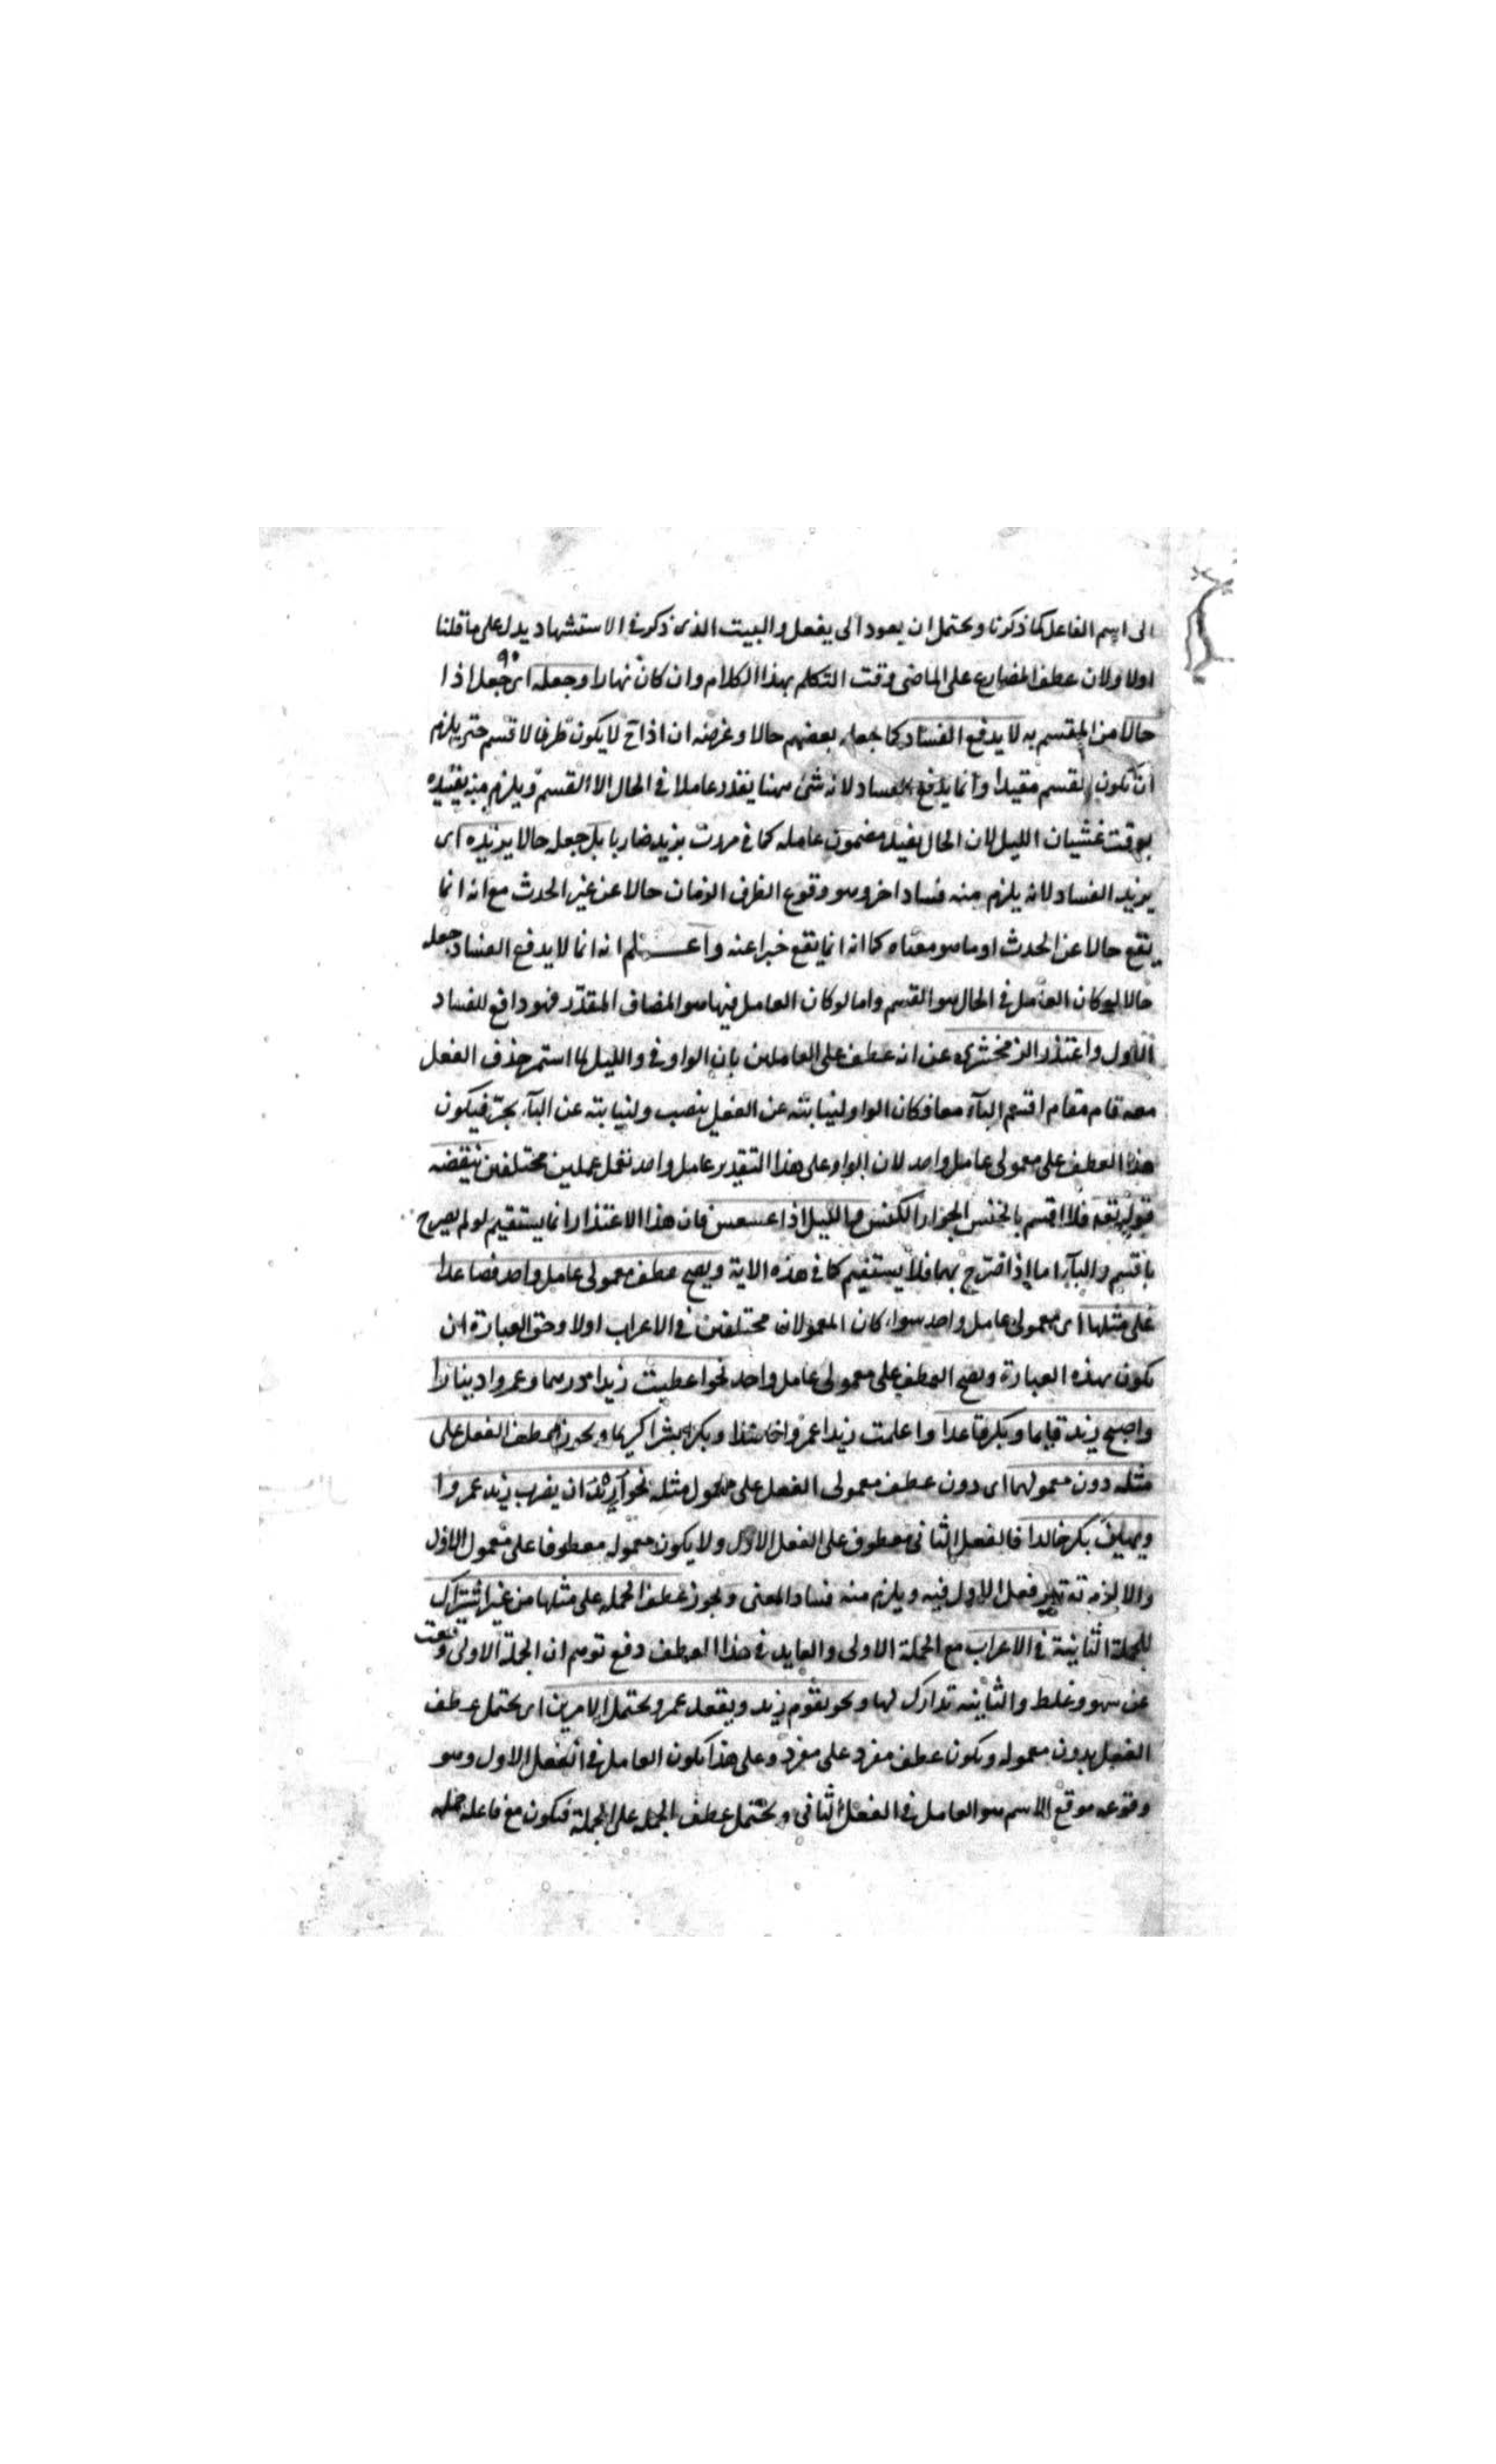 الى اسم الفاعل كما ذكرنا ويحتمل ان يعود الى يفعل والبيت الذى ذكر فى الاستشهاد يدل على ما قلنا
اولا ولان عطف المضارع على الماضى وقت التكلم بهذا الكلام وان كان نهارا وجعله اى جعل اذا
حالا من المقسم به لا يدفع الفساد كما جعله بعضهم حالا وغرضه ان اذا ح لا يكون ظرفا لاقسم حتى يلزم
ان يكون القسم مقيدا وانما يدفع الفساد لانه شئ هنا يقدر عاملا فى الحال الا القسم ويلزم منه تقييده
بوقت غشيان الليل لان الحال تقيد مضمون عامله كما فى مررت بزيد ضاربا بل جعله حالا يزيده اى
يزيد الفساد لانه يلزم منه فساد اخر وهو وقوع الظرف الزمان حالا عن غير الحدث مع انه انما
يقع حالا عن الحدث او ما هو معناه كما انه انما يقع خبرا عنه واعلم انه انما لا يدفع الفساد جعله
حالا لو كان العامل فى الحال هو القسم واما لو كان العامل فيها هو المضاف المقدر فهو دافع للفساد
الاول واعتذر الزمخشرى عن انه عطف على العاملين بان الواو فى والليل لما استمر حذف الفعل
معه قام مقام اقسم البآء معا فكان الواو لنيابته عن الفعل ينصب ولنيابته عن البآء يجر فيكون
هذا العطف على معمولى عامل واحد لان الواو على هذا التقدير عامل واحد تعمل عملين مختلفين تنقضه
قوله تعه فلا اقسم بالخنس الجوار الكنس والليل اذا عسعس فان هذا الاعتذار انما يستقيم لو لم يصرح
باقسم والبآء اما اذا صرح بهما فلا يستقيم كما فى هذه الاية ويصح عطف معمولى عامل واحد فصاعدا
على مثلها اى معمولى عامل واحد سواء كان المعمولان مختلفين فى الاعراب اولا وحق العبارة ان
يكون بهذه العبارة ويصح العطف على معمولى عامل واحد نحو اعطيت زيدا درهما وعمروا دينارا
واصبح زيد قايما وبكر قاعدا واعلمت زيدا عمروا وبكرا بشرا كريما ويجوز عطف الفعل على
مثله دون معمولهما اى دون عطف معمولى الفعل على معمول مثله نحو اريد ان يضرب زيد عمروا
ويهين بكر خالدا فالفعل الثانى معطوف على الفعل الاول ولا يكون معموله معطوفا على معمول الاول
والا لزم تاثير فعل الاول فيه ويلزم منه فساد المعنى ويجوز عطف الجملة على مثلها من غير اشتراك
للجملة الثانية فى الاعراب مع الجملة الاولى والفايد فى هذا العطف دفع توهم ان الجملة الاولى وقعت
عن سهو وغلط والثانية تدارك لها ونحو يقوم زيد ويقعد عمرو يحتمل الامرين اى يحتمل عطف
الفعل بدون معموله ويكون عطف مفرد على مفرد وعلى هذا يكون العامل فى الفعل الاول وهو
وقوعه موقع الاسم هو العامل فى الفعل الثانى ويحتمل عطف الجملة على الجملة فيكون مع فاعله جملة